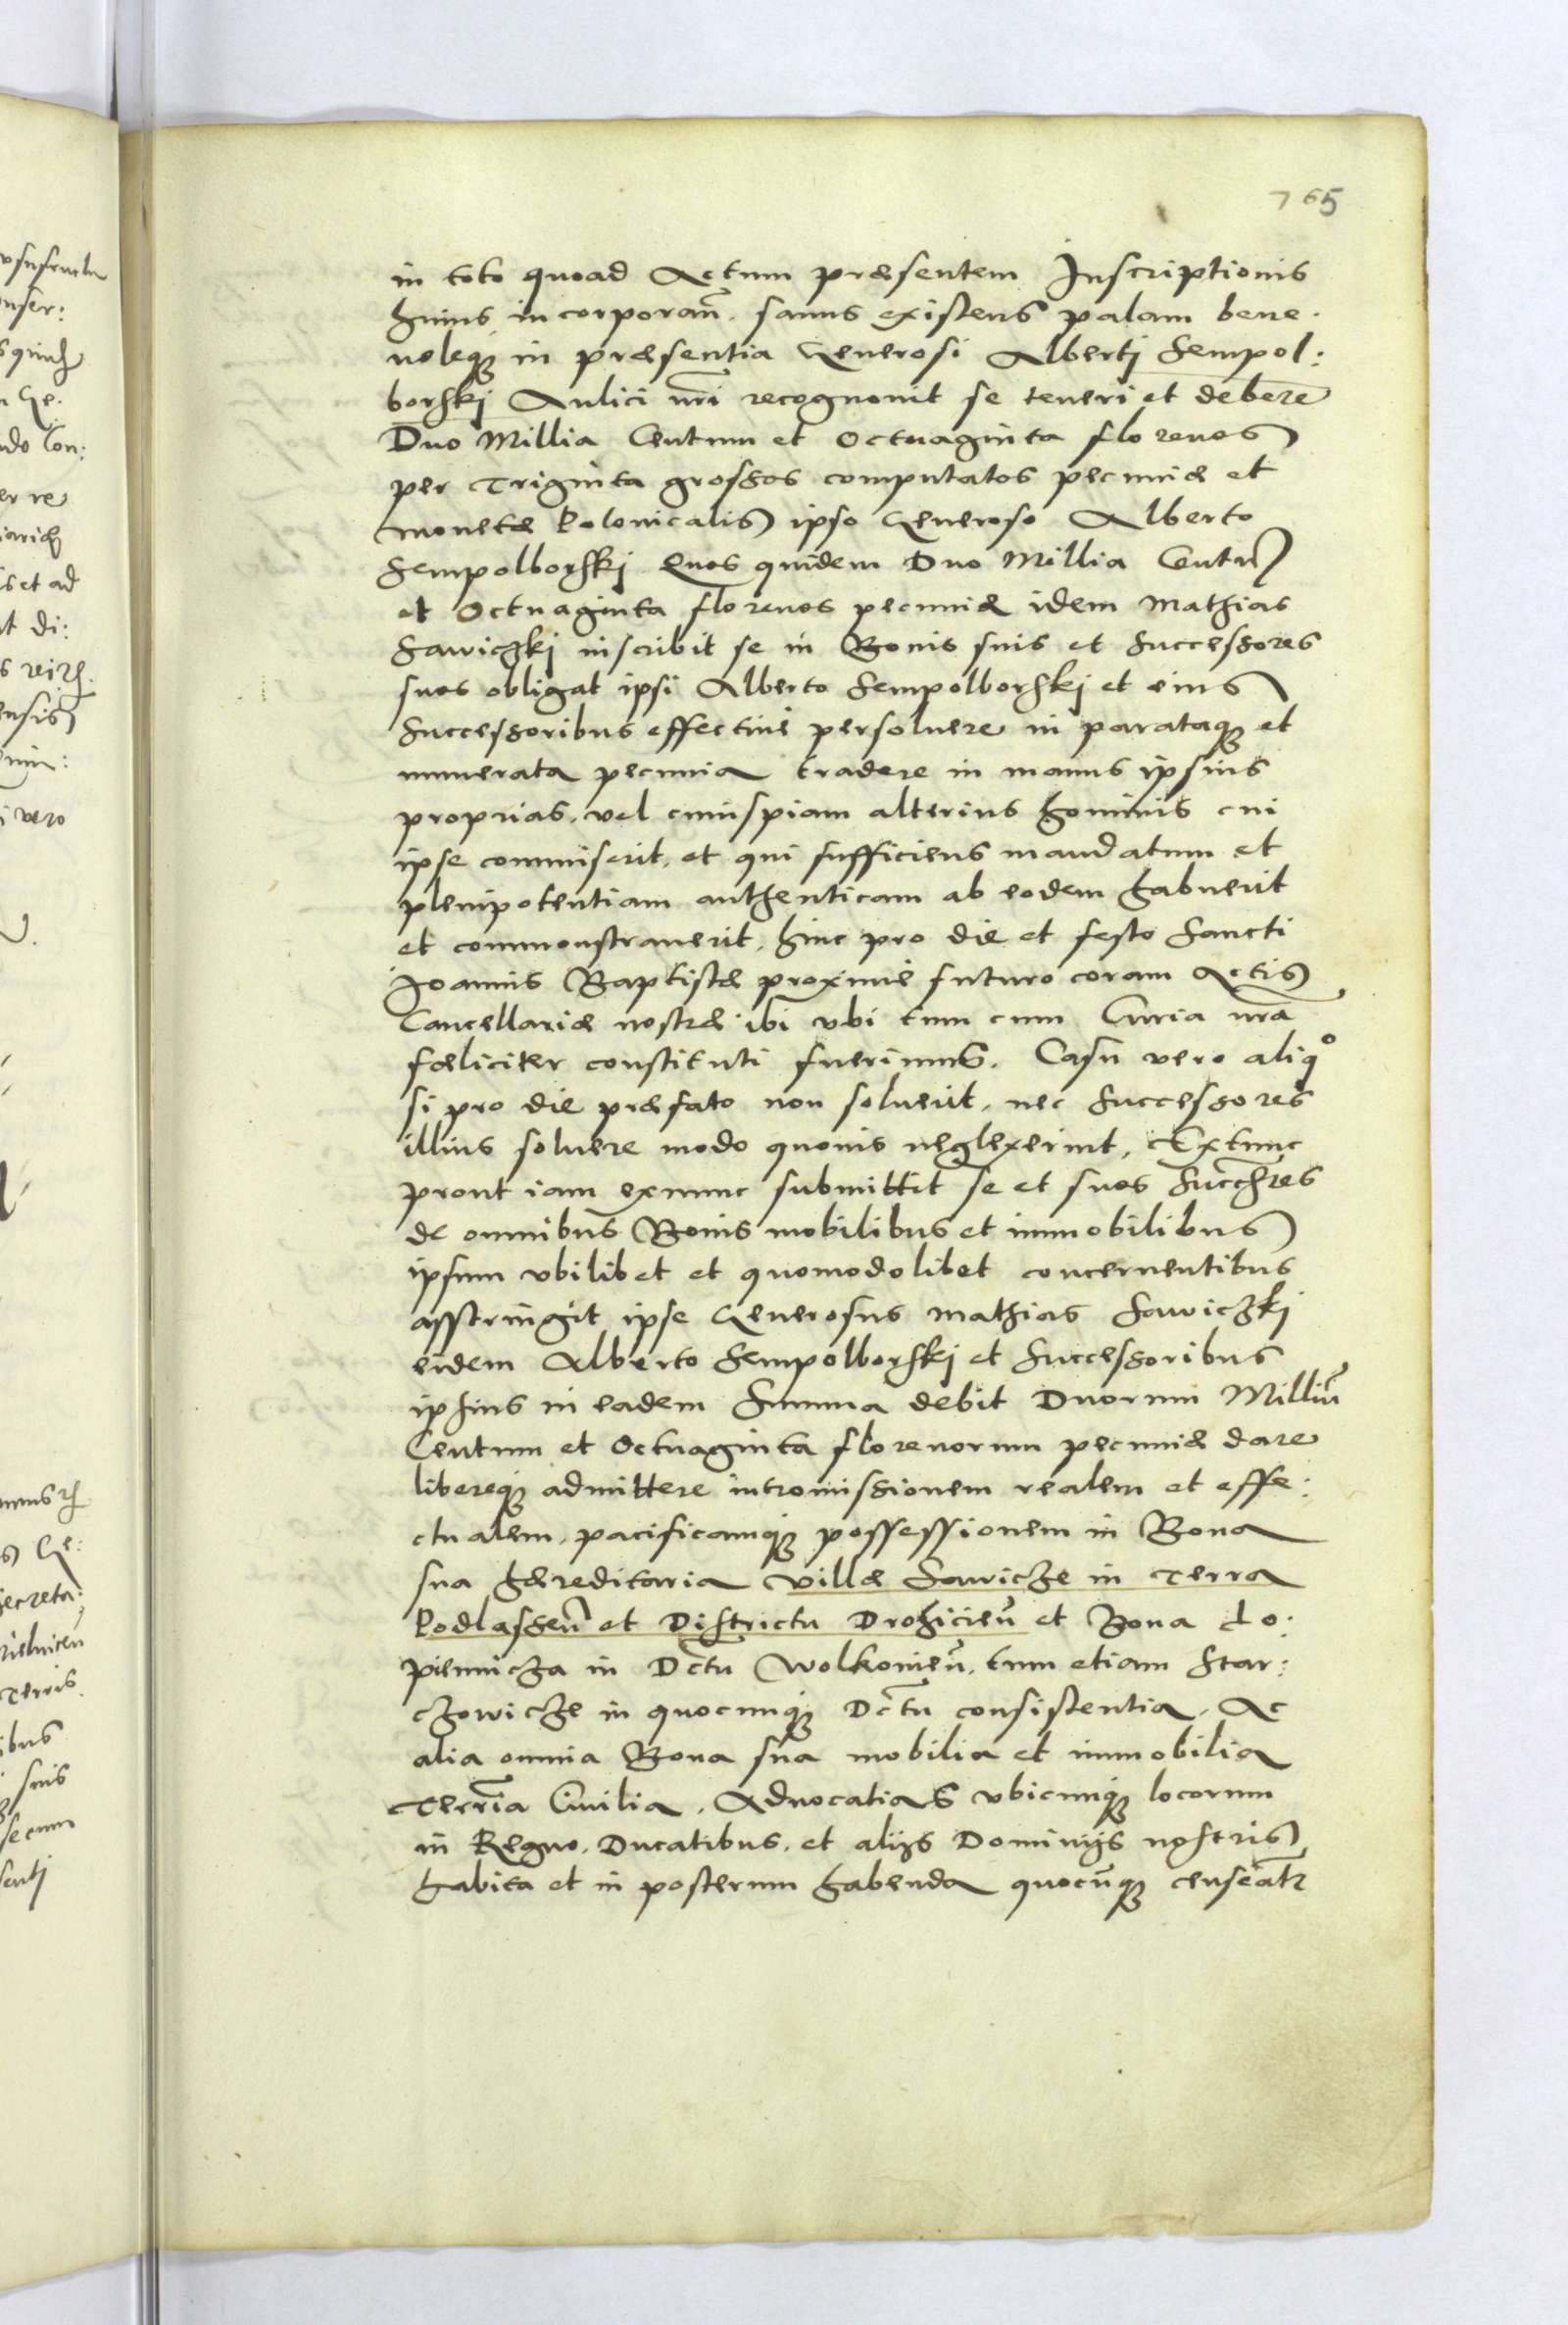 765
in toto quoad Actum præsentem Inscriptionis
huius incorporan̄. sanus existens palam bene.
voleq; in præsentia Generosi Alberti Sempol:
borskj Aulici nr̄i recognouit se teneri et debere
Duo Millia Centum et Octuaginta florenos
per Triginta grossos computatos pecuniæ et
monetæ Polonicalis ipso Generoso Alberto
Sempolborskj Quos quidem Duo Millia Centū
et Octuaginta florenos pecuniæ idem Mathias
Sawiczkj inscribit se in Bonis suis et Successores
suos obligat ipsi Alberto Sempolborskj et eius
Successoribus effectiuè persoluere in parataq; et
numerata pecunia tradere in manus ipsius
proprias, vel cuiuspiam alterius hominis cui
ipse commiserit, et qui sufficiens mandatum et
plenipotentiam authenticam ab eodem habuerit
et commonstrauerit, hinc pro die et festo Sancti
Joannis Baptistæ proximè futuro coram Actis
Cancellariæ nostræ ibi vbi tum cum Curia nr̄a
fæliciter constituti fuerimus. Casu vero aliqº
si pro die præfato non soluerit, nec Successores
illius soluere modo quouis neglexerint, Extunc
prout iam exnunc submittit se et suos Succh̄res
de omnibus Bonis mobilibus et immobilibus
ipsum vbilibet et quomodolibet concernentibus
asstringit ipse Generosus Mathias Sawiczkj
eidem Alberto Sempolborskj et Successoribus
ipsius in eadem Summa debit Duorum Milliū
Centum et Octuaginta florenorum pecuniæ dare
libereq; admittere intromissionem realem et effe:
ctualem, pacificamq; possessionem in Bona
sua hæreditaria villæ Sawicze in Terra
Podlassen̄ et Districtu Drohicien̄ et Bona Lo:
pienicza in Dc̄tu Wolkonien̄, tum etiam Star:
czowicze in quocunq; Dc̄tu consistentia, Ac
alia omnia Bona sua mobilia et immobilia
Terrīa Ciuilia, Aduocatias vbicunq; locorum
in Regno, Ducatibus, et alijs Dominijs nostris
habita et in posterum habenda quocūq; censeātr